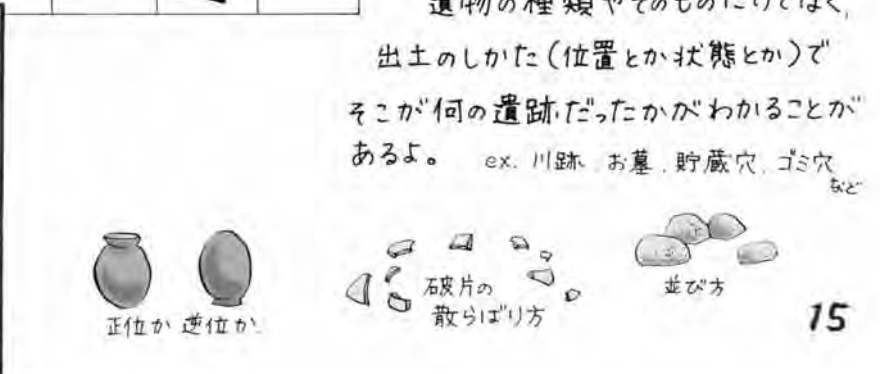 遺物の種類やそのものだけではなく、
出土のしかた(位置とか状態とか)で
そこが何の遺跡だったかがわかることが
あるよ。 ex. 川跡、お墓、貯蔵穴、ゴミ穴
など
正位か 逆位か
破片の
散らばり方
並び方
15